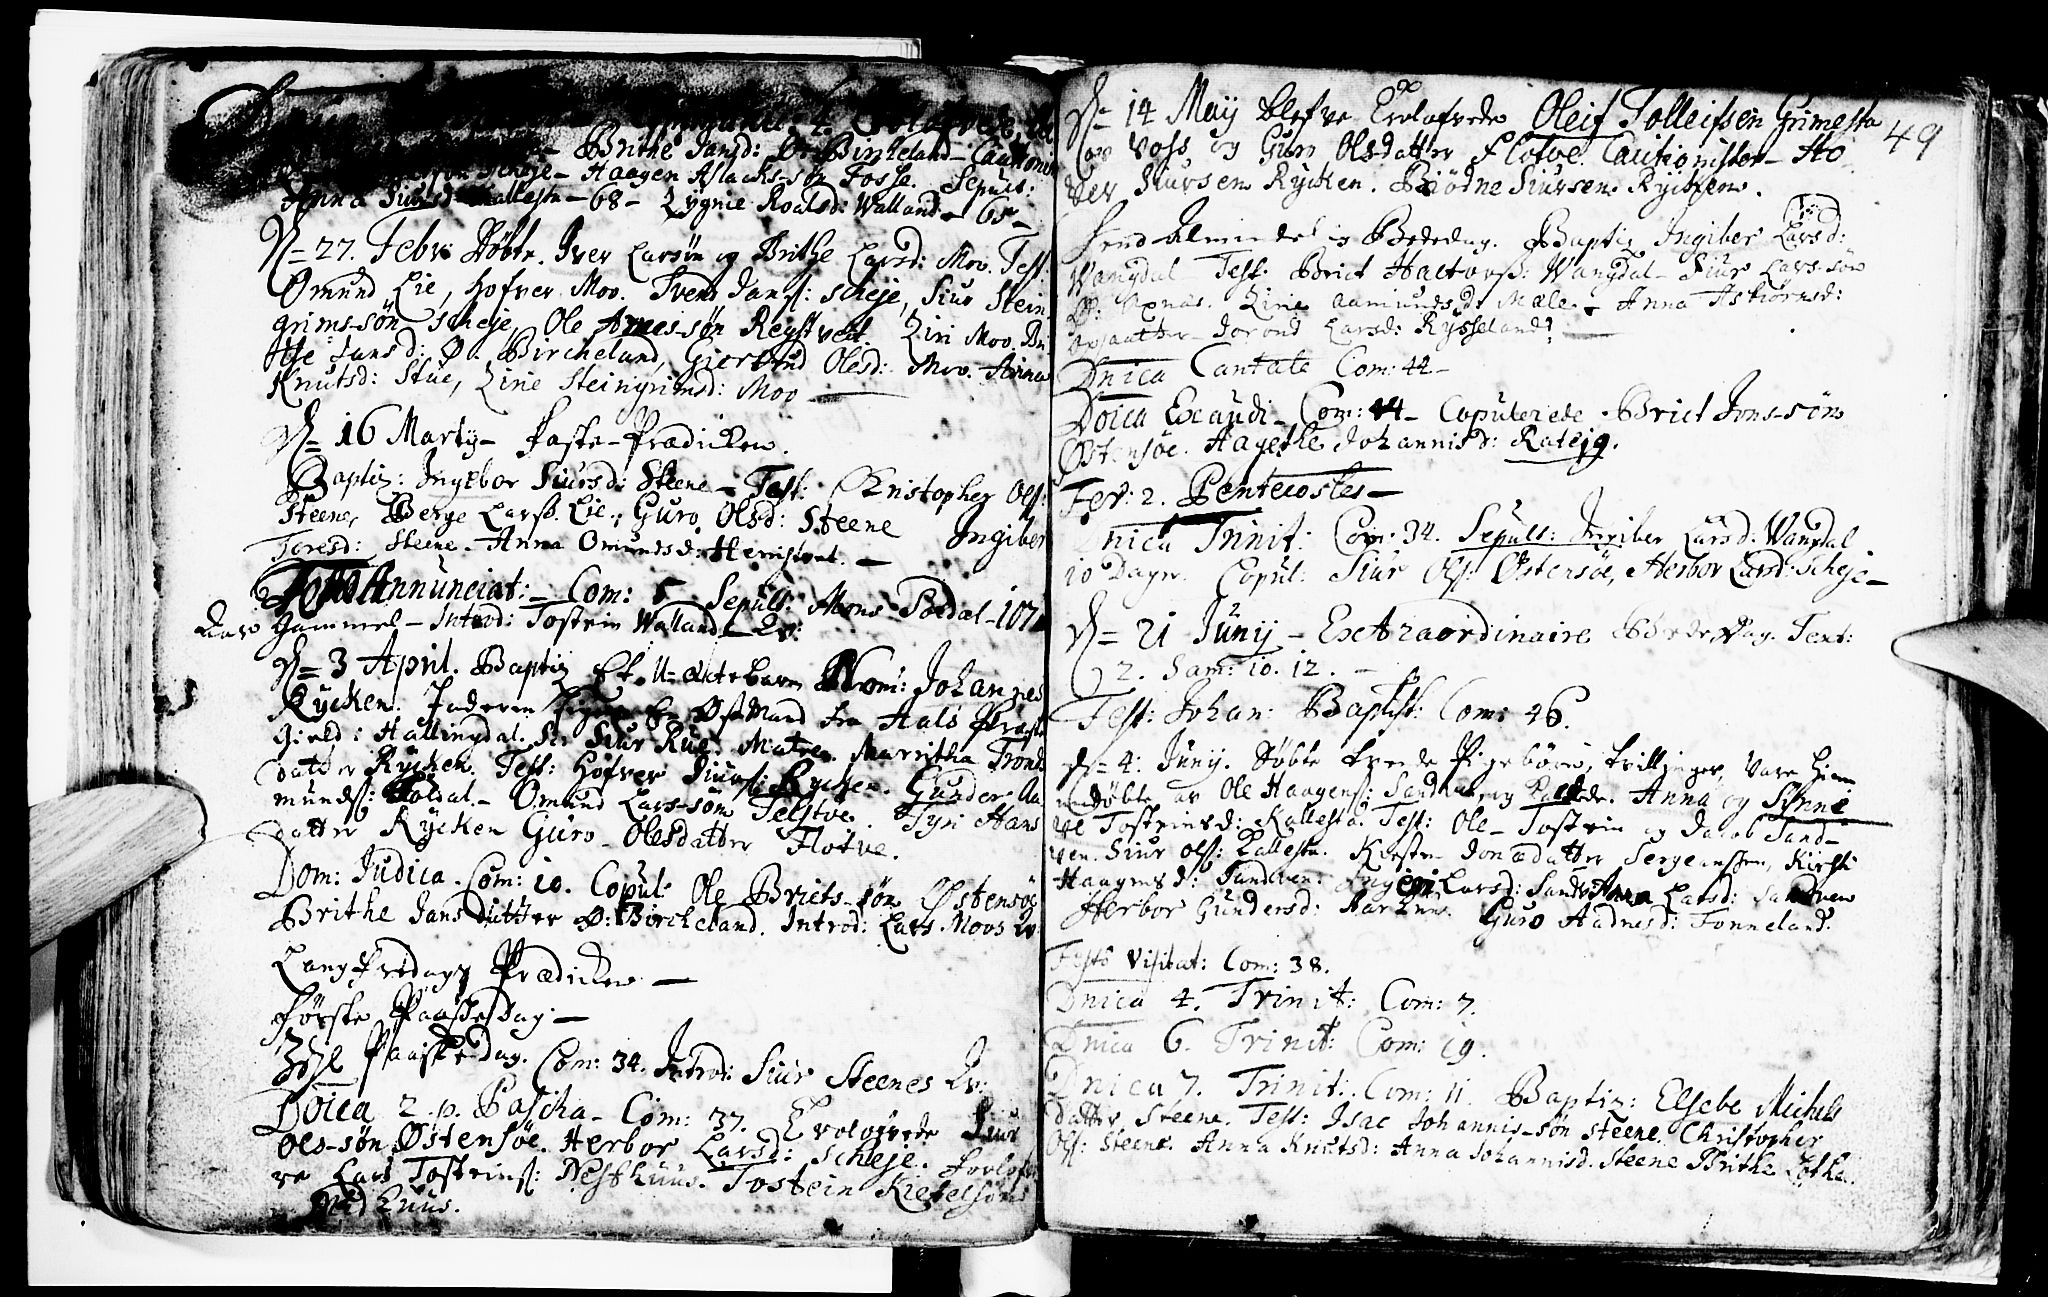 Brithe Jansd: Ø: Birkeland - Cautionist
Scheje - Haagen Aslacks-søn Fosse. Sepult:
Anna Siursd: Kallestu - 68 - Zygnie Roalsd: Walland - 65 -
D= 27. Febr: Døbte. Iver Larsøn og Brithe Larsd: Mov. Test:
Omund Lie, Hofver Mov. Svend Jans: Scheje, Siur Stein
grims-søn Scheje, Ole Arnes-søn Reystved. Ziri Mov. Bri
the Jansd: Ø: Bircheland, Giertrud Olesd: Mov. Anna
Knutsd: Stue, Zirie Steingrimsd: Mov
D= 16 Martij - Faste-Prædicken.
Baptiz: Ingebor Siursd: Steene - Test: Christopher Ols:
Steene, Berge Larss. Lie; Guro Olsd: Steene Ingiber
Toresd: Steene. Anna Omundsd:
Festo Annunciat: - Com: 5 Sepult: Mons Soldal - 107
Aar Gammel - Introd: Tostein Walland Kv:
D= 3 April. Baptiz Et U-ægte barn Nom: Johannes
Rycken. Faderen Østmand fra Aals Præste
Gield i Hallingdal. Siur Rue. Matre Marritha Tronds
datter Rycken. Test: Hofver Siurs: Rycken. Gunder Aa
munds: Soldal - Omund Lars-søn Telstve. Tyri Hans
datter Rycken Guro Olesdatter Flotve.
Dom: Judica. Com: 10. Copul: Ole Briets-søn Østensøe
Brithe Jansdatter Ø: Bircheland. Introd: Lars Movs Kv:
Langfredags Prædicken -
Første Paaskedag -
Paaskedag. Com: 34. Introd: Siur Steenes Kv:
Doica 2. p. Pascha - Com: 37. Trolofvede Siur
Ols-søn Østensøe. Herbor Larsd: Scheje. Forlofve
re Lars Tosteins: Nesthuus. Tostein Kietelsøn
Nedhuus.
49
D= 14 Maij blefve Trolofvede Oleif Tolleifsen Grimesta
av Voss og Guro Olsdatter Flotve. Cautionister - Ho
ver Siursen Rycken. Biødne Siursen Rycken.
Almindelig Bededag. Baptiz Ingiber Larsd:
Wangdal - Test: Brict Haltorss: Wangdal - Siur Lars-søn
Ø: Axnæs. Zirie Aamundsd: Mæle - Anna Asbiørnsd:
Jorond Larsd: Rysseland
Dnica Cantate Com: 44 -
Doica Exaudi - Com: 44 - Copulerede Brict Jons-søn
Østensøe. Hagethe Johannisd: Rateig.
Fer: 2. Pentecostes -
Dnica Trinit: Com: 34. Sepult: Ingiber Larsd: Wangdal
10 Dage. Copul: Siur Ols: Østensøe, Herbor Larsd: Scheje -
D= 21 Junij - Extraordinaire Bededag. Text:
2. Sam: 10. 12. -
Fest: Johan: Baptist: Com: 46.
D= 4. Junij. Døbte tvende Pigebørn, tvillinger, vare hiem
medøbte av Ole Haagens: Sandven og kaldede. Anna og Synne
ve Tosteinsd: Kallestu. Test: Ole - Tostein og Jacob Sand-
ven. Siur Ols: Kallestu. Kirsten Jonædatter Sergeansten, Kirsti
Haagensd: Sandven. Ingeri Larsd: Sandv: Anna Larsd: Sandven
Herbor Gundersd: Guro Aadnesd: Tonneland.
Festo Visitat: Com: 38.
Dnica 4. Trinit: Com: 7.
Dnica 6. Trinit: Com: 19.
Dnica 7. Trinit: Com: 11. Baptiz: Elsebe Michels
datter Steene. Test: Isac Johannis-søn Steene. Christopher
Ols: Steene. Anna Knutsd: Anna Johannisd. Steene Brithe